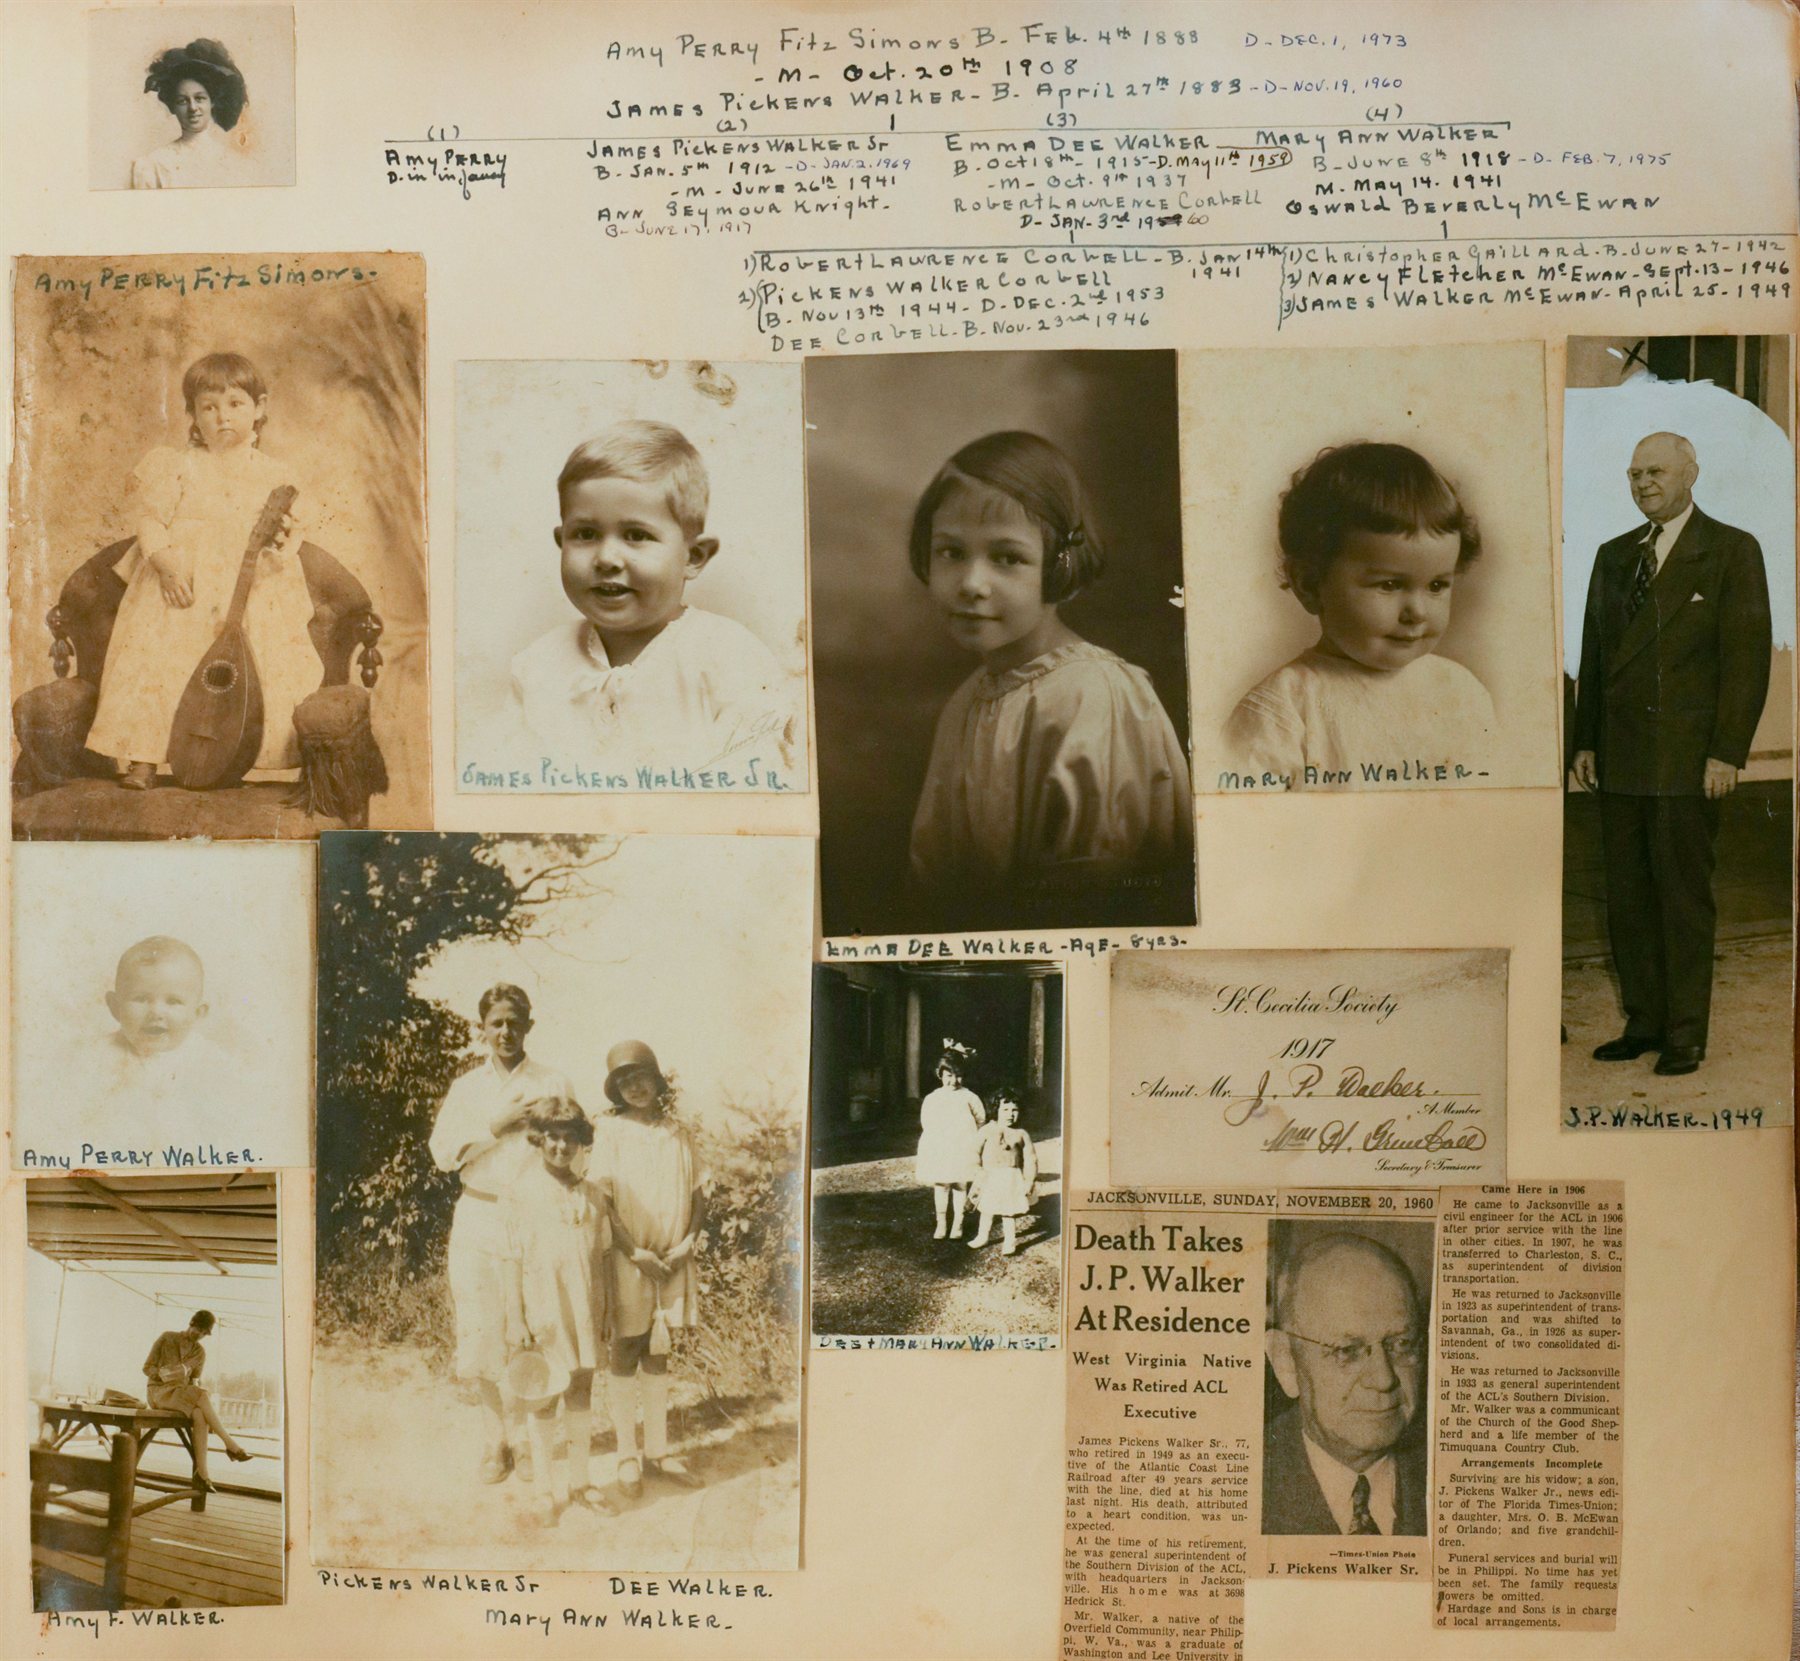 Amy Perry Fitz Simons B- Feb. 4th 1888 D- Dec. 1, 1973
- M - Oct. 20th 1908
James Pickens Walker - B. April 27th 1883 - D - Nov. 19, 1960
(1) (2) (3) (4)
Amy Perry
D. in infancy
James Pickens Walker Jr
B. Jan. 5th 1912 - D - Jan. 2, 1969
- M - June 26th 1941
Ann Seymour Knight -
B - June 17, 1917
Emma Dee Walker
B. Oct 18th - 1915 - D. May 11th 1959
- M - Oct. 9th 1937
Robert Lawrence Corbell
D - Jan - 3rd 1960
Mary Ann Walker
B - June 8th 1918 - D - Feb. 7, 1975
M. May 14. 1941
Oswald Beverly McEwan
1) Robert Lawrence Corbell - B. Jan 14th
1941
2) Pickens Walker Corbell
B. Nov 13th 1944 - D. Dec. 2nd 1953
Dee Corbell - B. Nov. 23rd 1946
(1) Christopher Gaillard - B. June 27 - 1942
2) Nancy Fletcher McEwan - Sept. 13 - 1946
3) James Walker McEwan - April 25 - 1949
Amy Perry Fitz Simons -
James Pickens Walker Jr.
Mary Ann Walker -
Emma Dee Walker - Age - 8 yrs -
J.P. Walker - 1949
Amy Perry Walker.
Dee + Mary Ann Walker.
Amy F. Walker.
Pickens Walker Jr Dee Walker.
Mary Ann Walker -
St. Cecilia Society
1917
Admit Mr. J. P. Walker.
A Member
Wm H. Grimball
Secretary & Treasurer
JACKSONVILLE, SUNDAY, NOVEMBER 20, 1960
Death Takes
J. P. Walker
At Residence
West Virginia Native
Was Retired ACL
Executive
James Pickens Walker Sr., 77,
who retired in 1949 as an execu-
tive of the Atlantic Coast Line
Railroad after 49 years service
with the line, died at his home
last night. His death, attributed
to a heart condition, was un-
expected.
At the time of his retirement,
he was general superintendent of
the Southern Division of the ACL,
with headquarters in Jackson-
ville. His home was at 3698
Hedrick St.
Mr. Walker, a native of the
Overfield Community, near Philip-
pi, W. Va., was a graduate of
Washington and Lee University in
—Times-Union Photo
J. Pickens Walker Sr.
Came Here in 1906
He came to Jacksonville as a
civil engineer for the ACL in 1906
after prior service with the line
in other cities. In 1907, he was
transferred to Charleston, S. C.,
as superintendent of division
transportation.
He was returned to Jacksonville
in 1923 as superintendent of trans-
portation and was shifted to
Savannah, Ga., in 1926 as super-
intendent of two consolidated di-
visions.
He was returned to Jacksonville
in 1933 as general superintendent
of the ACL's Southern Division.
Mr. Walker was a communicant
of the Church of the Good Shep-
herd and a life member of the
Timuquana Country Club.
Arrangements Incomplete
Surviving are his widow; a son,
J. Pickens Walker Jr., news edi-
tor of The Florida Times-Union;
a daughter, Mrs. O. B. McEwan
of Orlando; and five grandchil-
dren.
Funeral services and burial will
be in Philippi. No time has yet
been set. The family requests
flowers be omitted.
Hardage and Sons is in charge
of local arrangements.